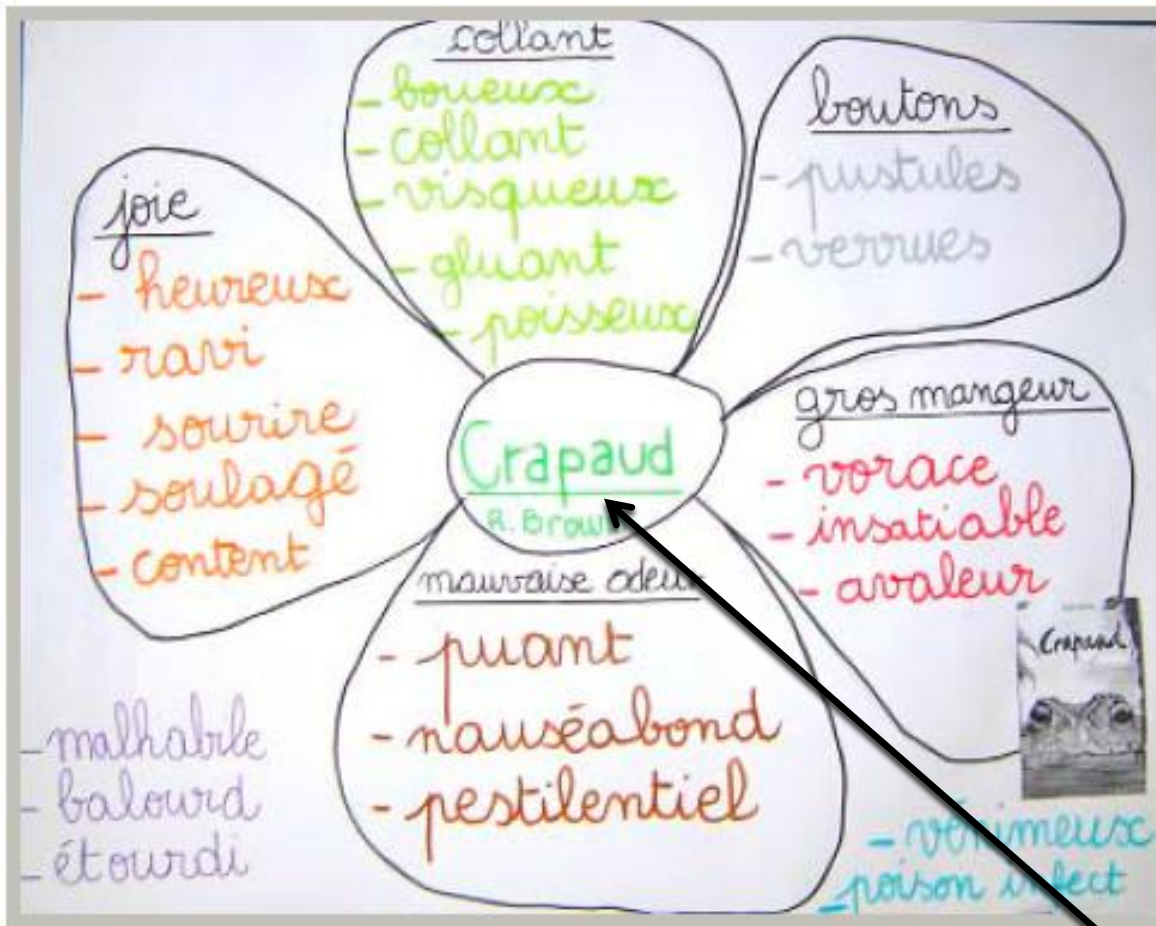 collant
- boueux
- collant
- visqueux
- gluant
- poisseux
boutons
- pustules
- verrues
joie
- heureux
- ravi
- sourire
- soulagé
- content
Crapaud
R. Brow
gros mangeur
- vorace
- insatiable
- avaleur
mauvaise odeur
- puant
- nauséabond
- pestilentiel
Crapaud
- malhabile
- balourd
- étourdi
- vénimeux
- poison infect